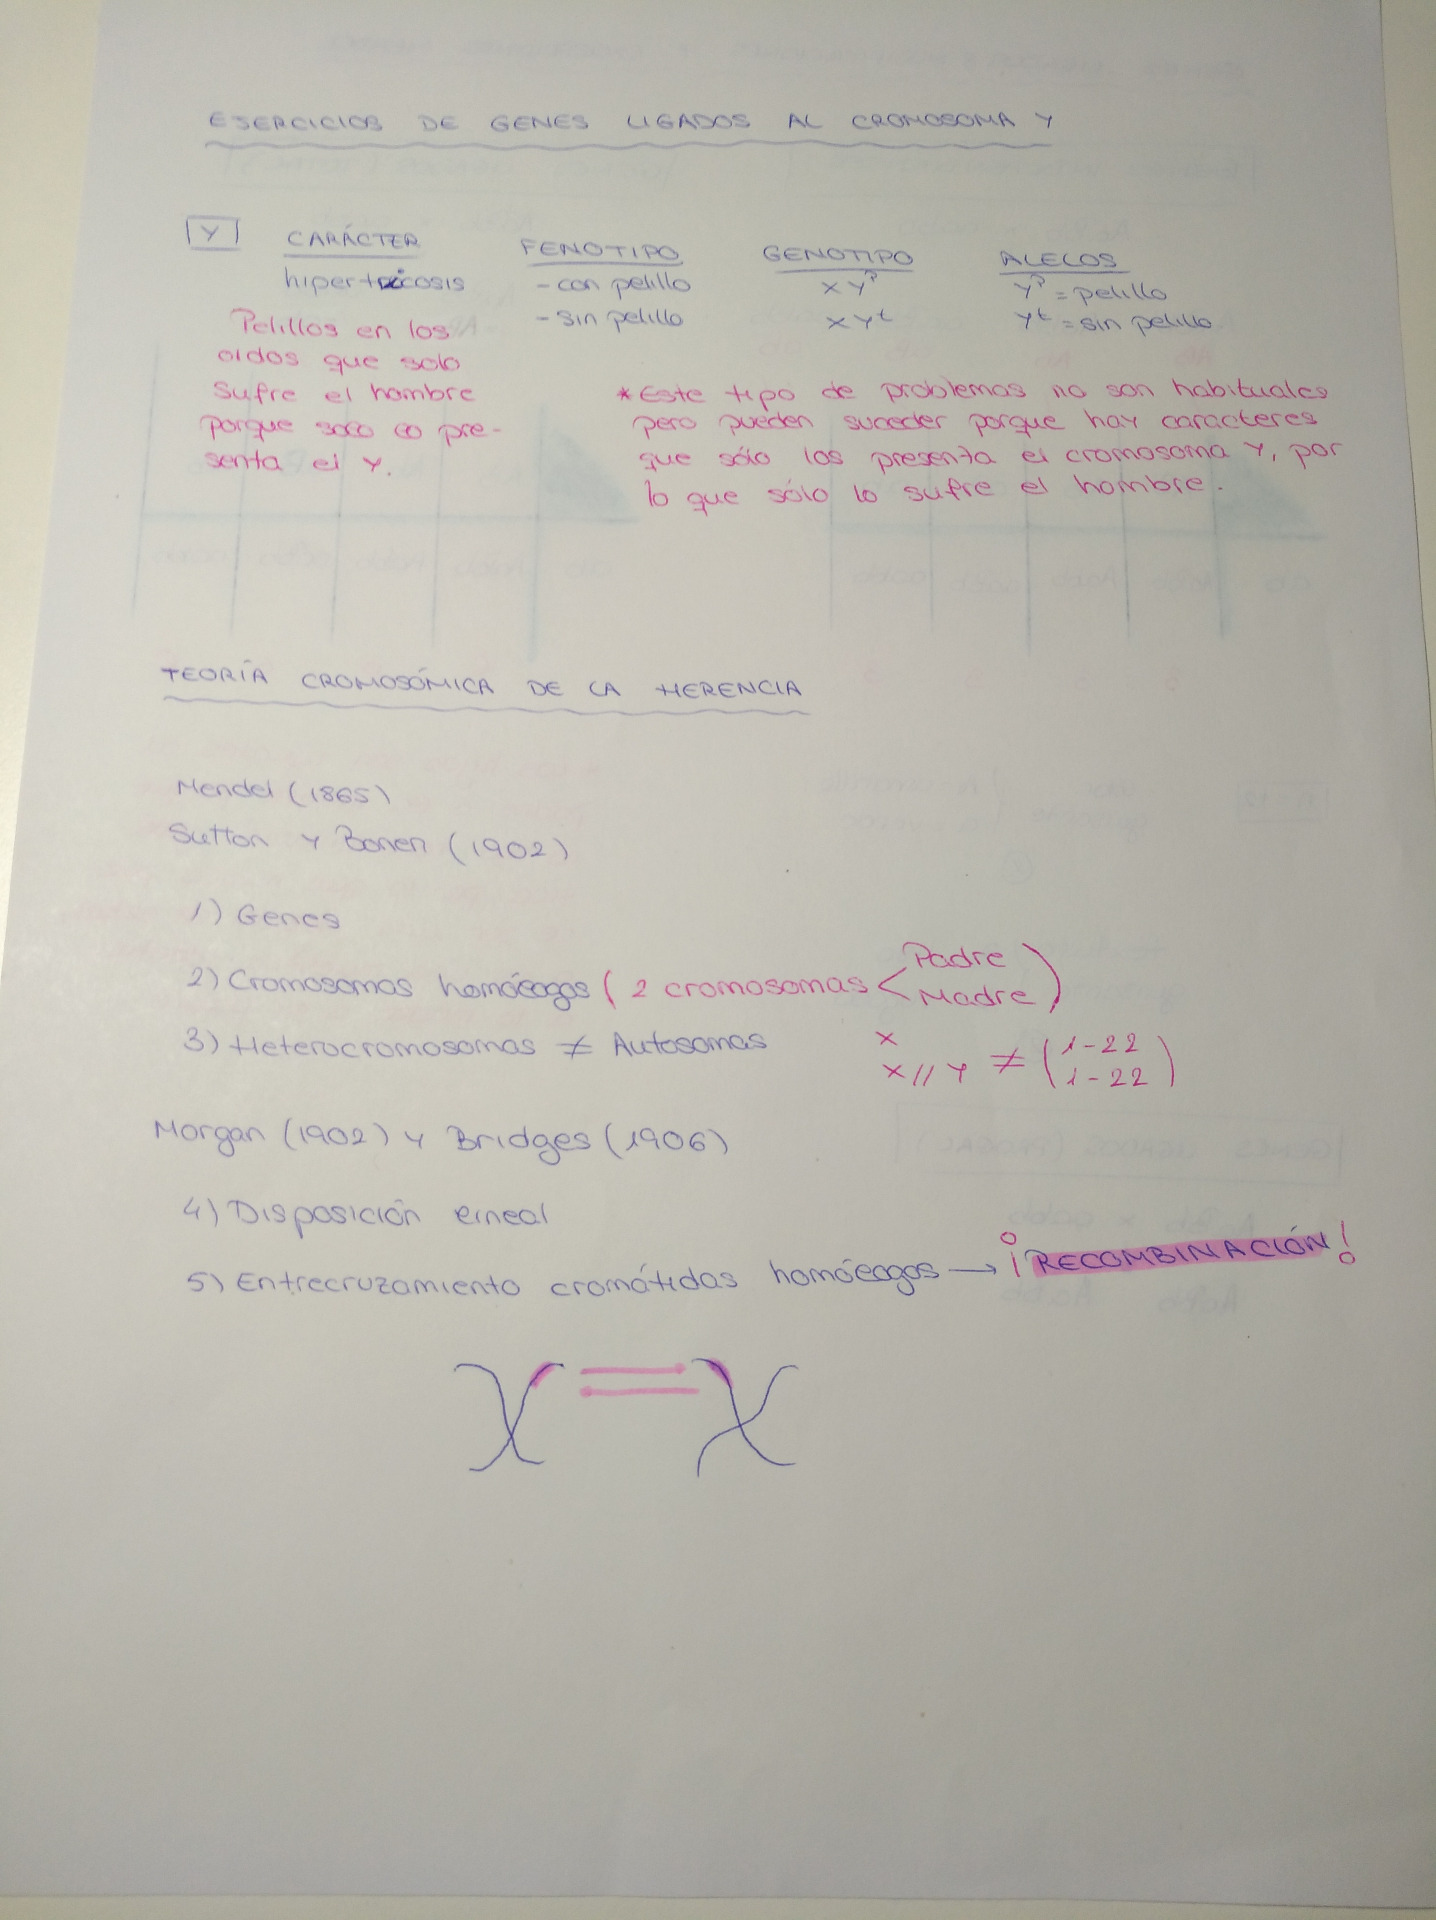 EJERCICIOS DE GENES LIGADOS AL CROMOSOMA Y
Y CARÁCTER FENOTIPO GENOTIPO ALELOS
hipertricosis - con pelillo XYᵖ Yᵖ = pelillo
- sin pelillo XYᴸ Yᴸ = sin pelillo
Pelillos en los
oídos que solo
sufre el hombre
porque solo lo pre-
senta el Y.
* Este tipo de problemas no son habituales
pero pueden suceder porque hay caracteres
que sólo los presenta el cromosoma Y, por
lo que sólo lo sufre el hombre.
TEORÍA CROMOSÓMICA DE LA HERENCIA
Mendel (1865)
Sutton y Boneri (1902)
1) Genes
2) Cromosomas homólogos ( 2 cromosomas < Padre
Madre )
3) Heterocromosomas ≠ Autosomas X
X//Y ≠ (1-22
1-22)
Morgan (1902) y Bridges (1906)
4) Disposición lineal
5) Entrecruzamiento cromátidas homólogas → ¡RECOMBINACIÓN!